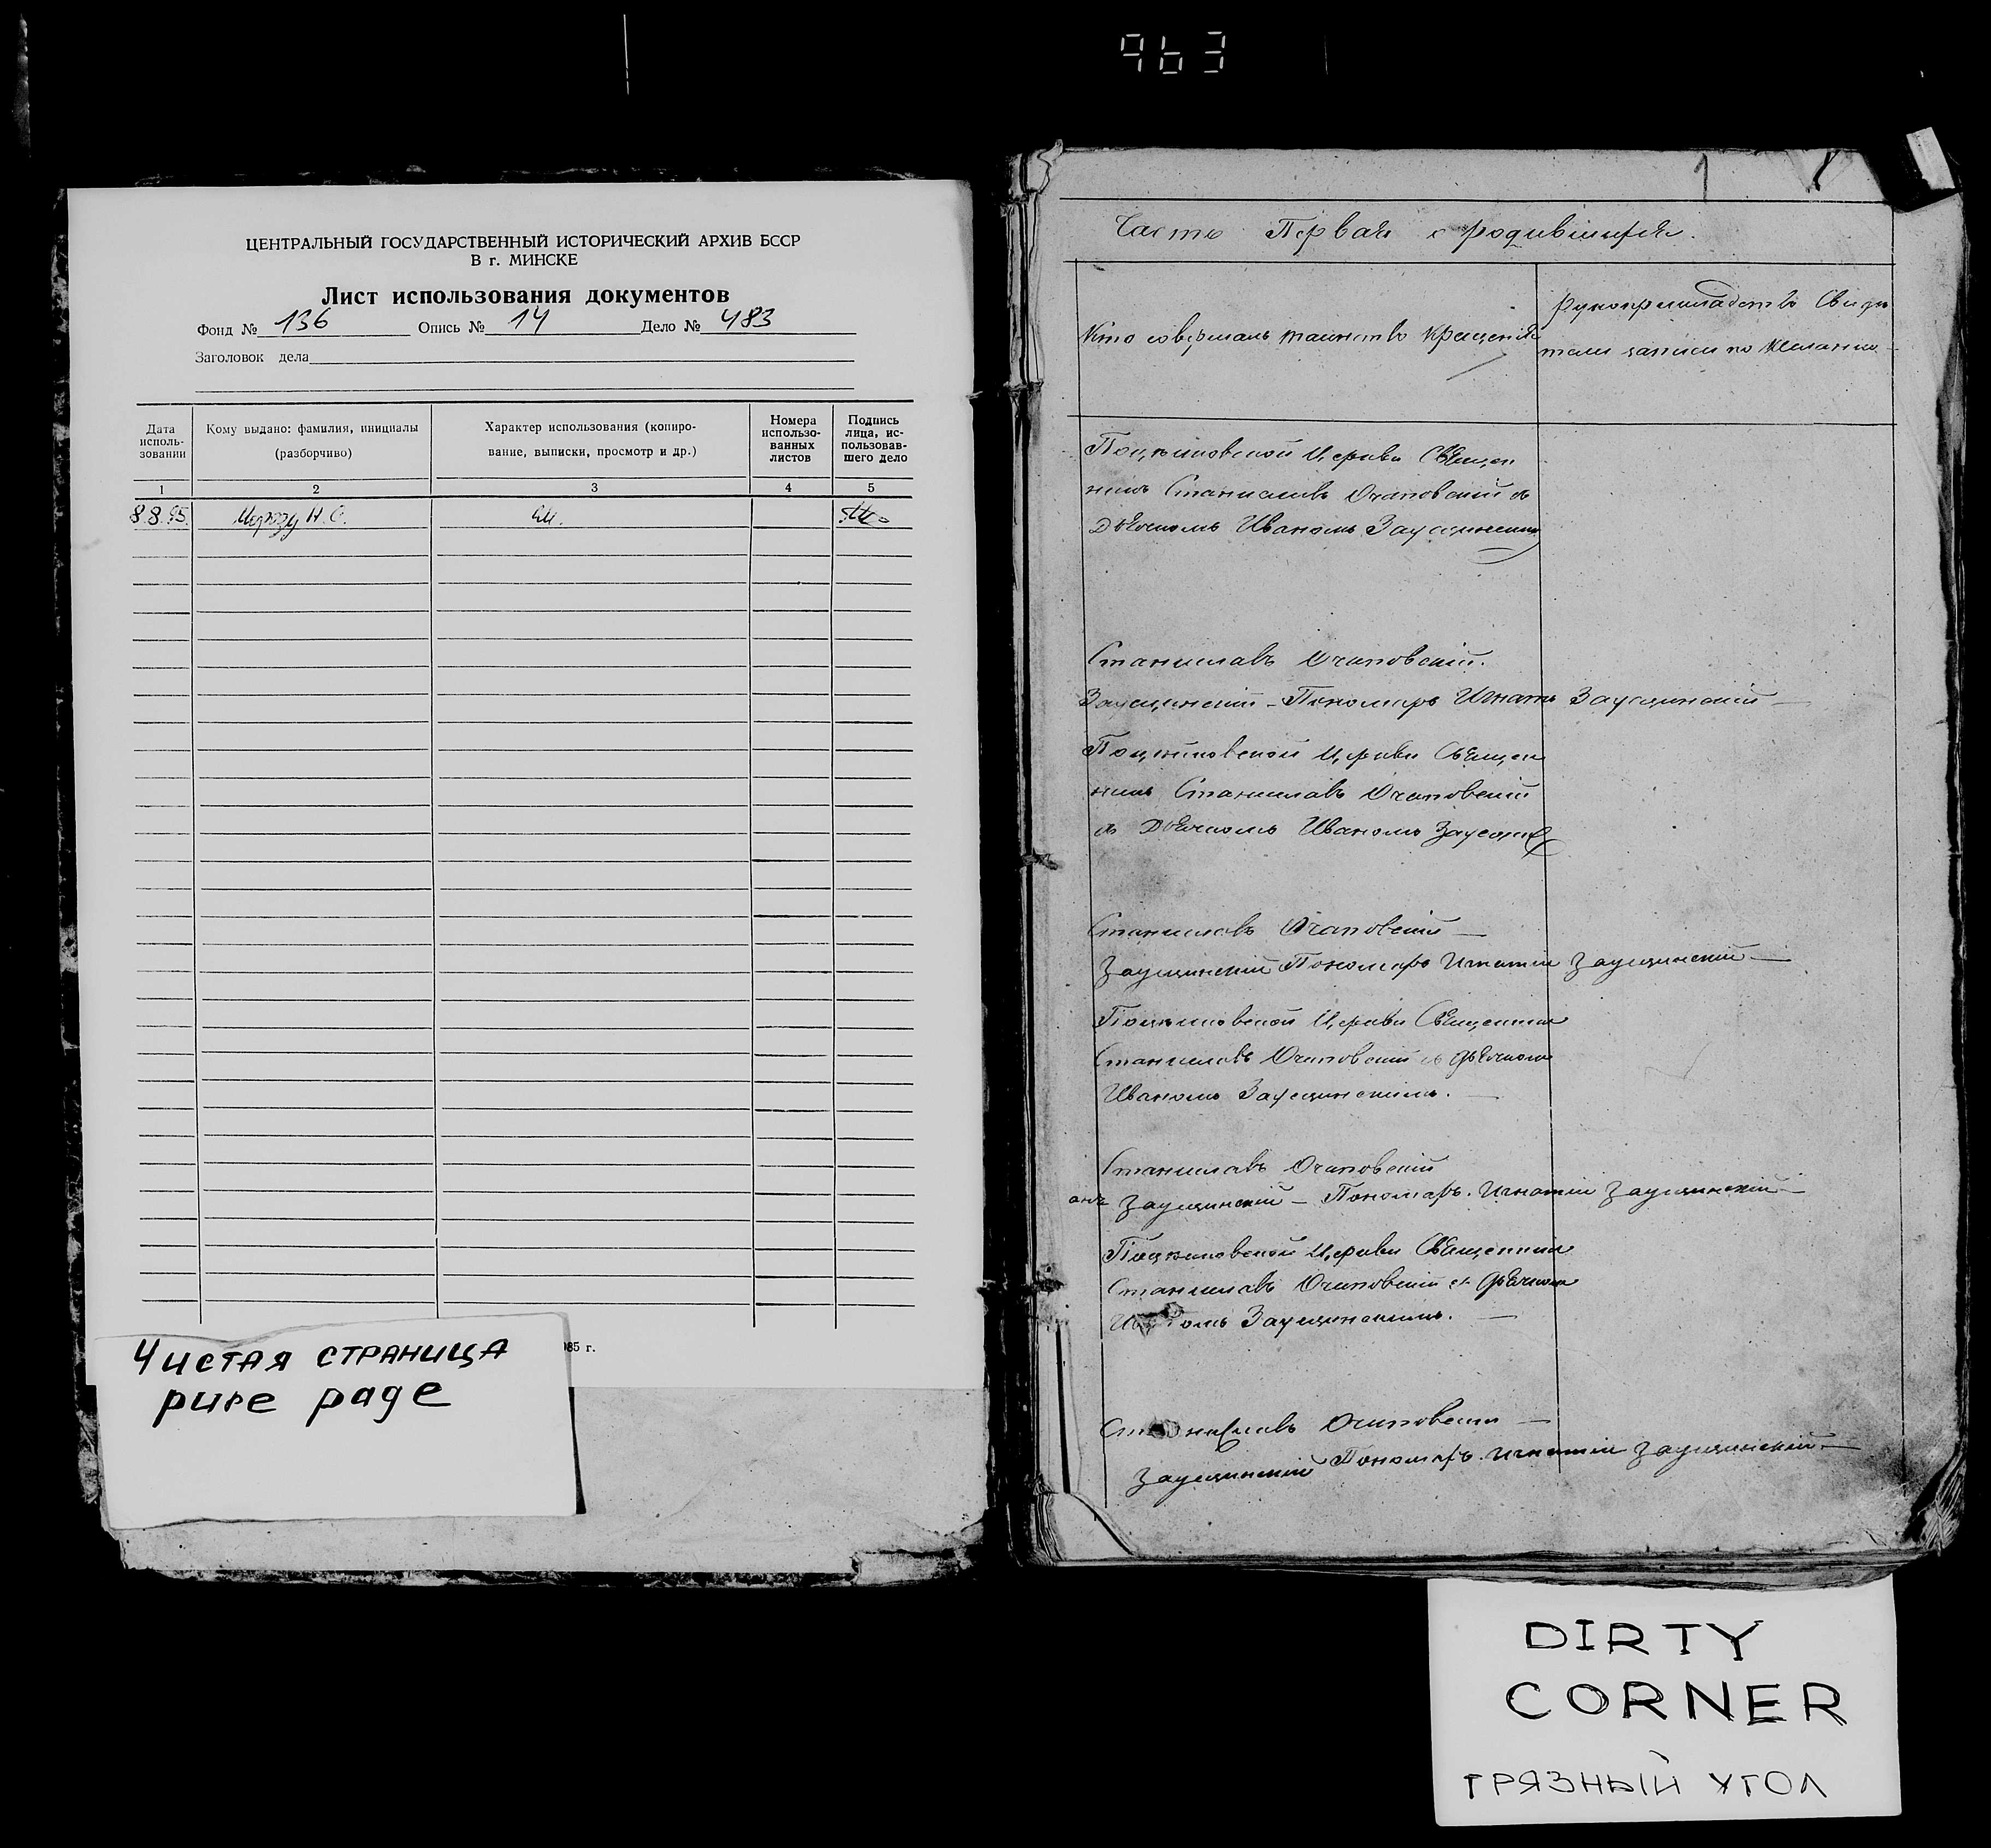 963
ЦЕНТРАЛЬНЫЙ ГОСУДАРСТВЕННЫЙ ИСТОРИЧЕСКИЙ АРХИВ БССР
В г. МИНСКЕ
Лист использования документов
Фонд № 136 Опись № 14 Дело № 483
Заголовок дела
Дата исполь-зовании
Кому выдано: фамилия, инициалы (разборчиво)
Характер использования (копиро-вание, выписки, просмотр и др.)
Номера использо-ванных листов
Подпись лица, ис-пользовав-шего дело
1 2 3 4 5
8.8.95
85 г.
Чистая страница
pure page
1
Часть Первая о родившихся.
Кто совершалъ таинство крещенія
Рукоприкладство Свидѣ
телей записи по желанію
Церкви Священ
никъ Станиславъ Очаповскій съ
Дьячкомъ Иваномъ
Станиславъ Очаповскій.
Заусцинскій - Пономарь Игнатій Заусцинскій
Церкви Священ
никъ Станиславъ Очаповскій
съ Дьячкомъ Иваномъ
Станиславъ Очаповскій
Заусцинскій Пономарь Игнатій Заусцинскій
Церкви Священникъ
Станиславъ Очаповскій съ Дьячкомъ
Иваномъ Заусцинскимъ.
Станиславъ Очаповскій
Заусцинскій - Пономарь Игнатій Заусцинскій
Церкви Священникъ
Станиславъ Очаповскій съ Дьячкомъ
Заусцинскимъ.
Станиславъ Очаповскій
Заусцинскій Пономарь Игнатій Заусцинскій
DIRTY
CORNER
ГРЯЗНЫЙ УГОЛ